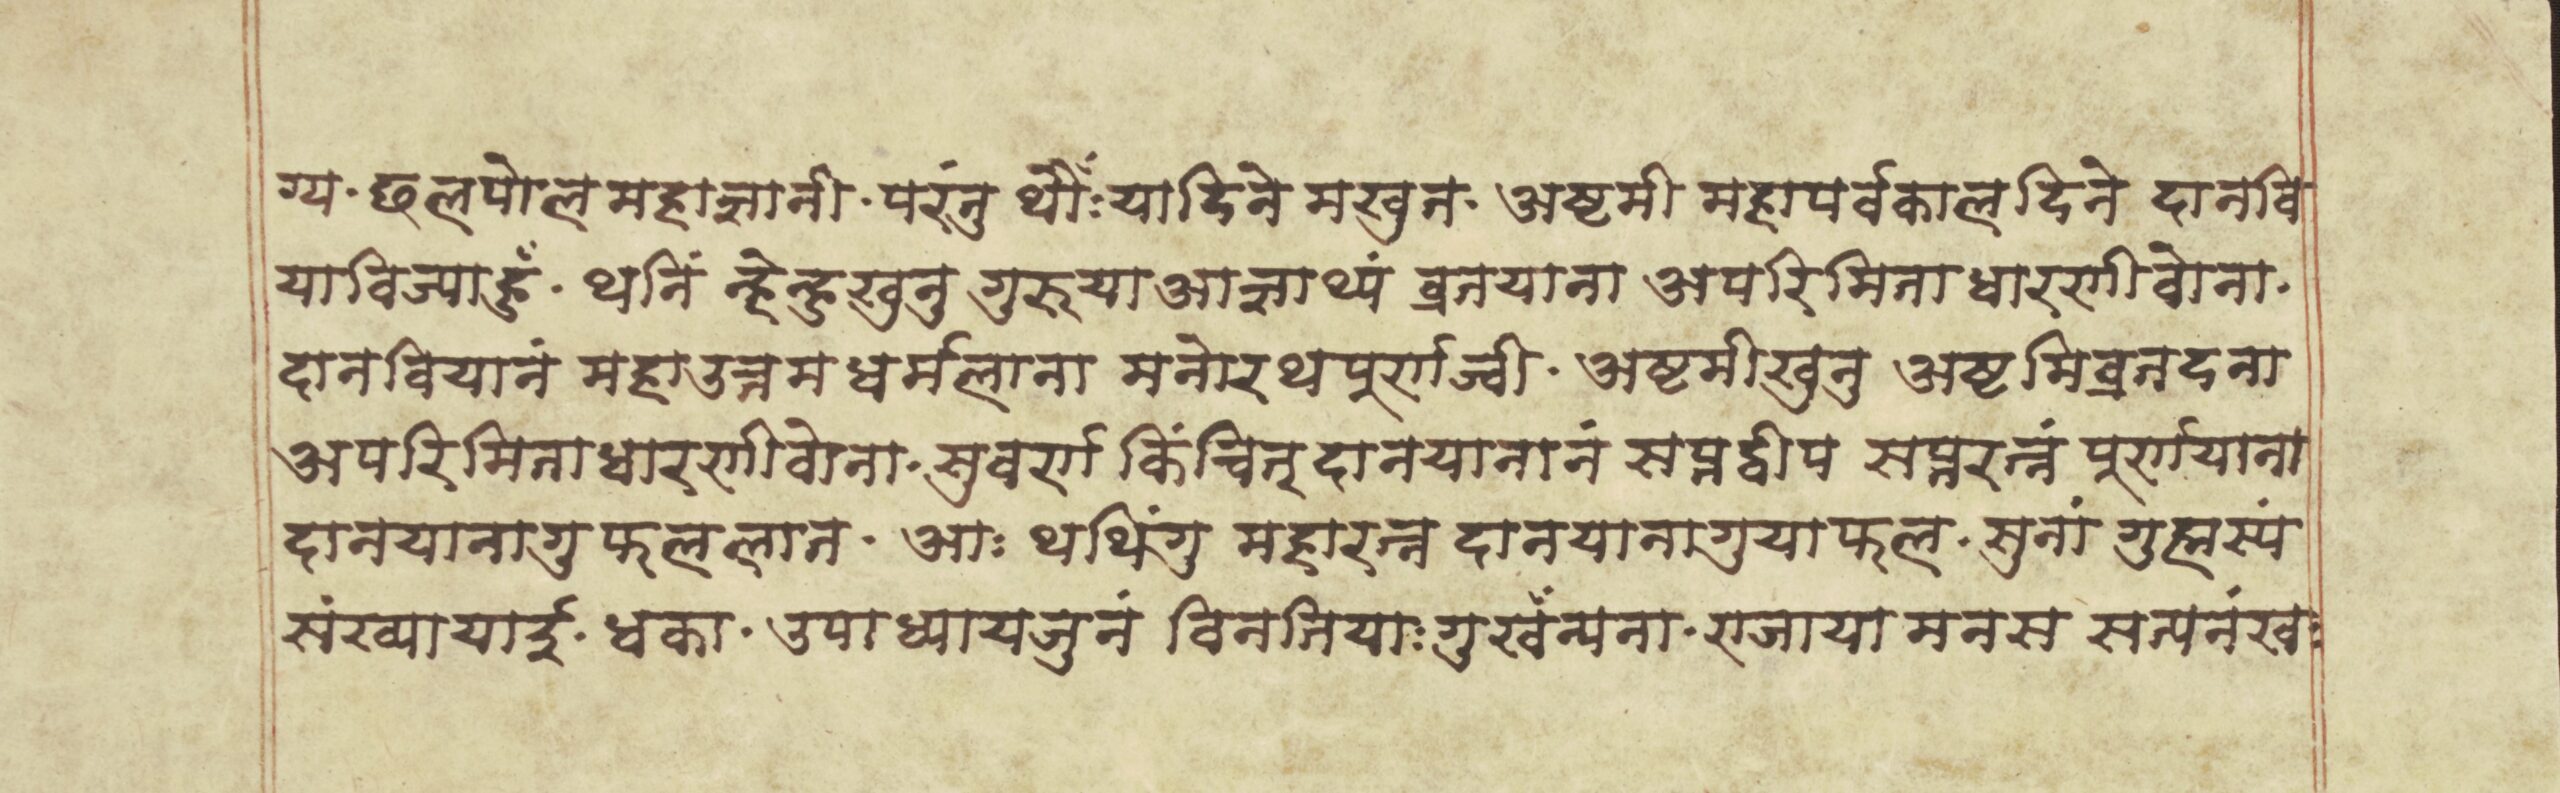 ग्य· छलपोल महाज्ञानी· परंतु थौँः या दिने मखुत· अष्टमी महापर्वकाल दिने दानवि
याविज्याहुँ· थनिं न्हेन्हु खुनु गुरुया आज्ञाथ्यं व्रतयाना अपरिमिता धारणी वोना·
दानवियानं महाउत्तम धर्मलाना मनोरथपुर्णाज्वी· अष्टमीखुनु अष्टमिव्रतदना
अपरिमिता धारणीवोना· सुवर्ण किंचित् दानयानानं सप्तद्वीप सप्तरत्नं पुर्णयाना
दानयानागु फललात· आः थथिंगु महारत्न दानयानागुया फल· सुनां गुह्मस्यं
संख्यायाई· धका· उपाध्यायजुनं विनतियाःगु खँन्यना· राजाया मनस सत्यनंखः